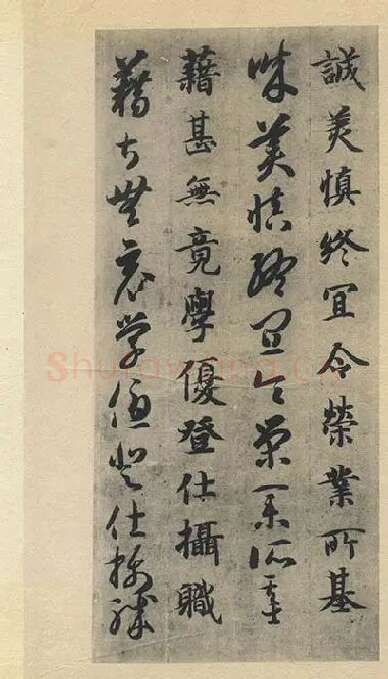 誠美慎終冝令榮業所基
誠美慎終宜令榮業所基
藉甚無竟學優登仕攝職
藉甚無竟学優登仕攝職